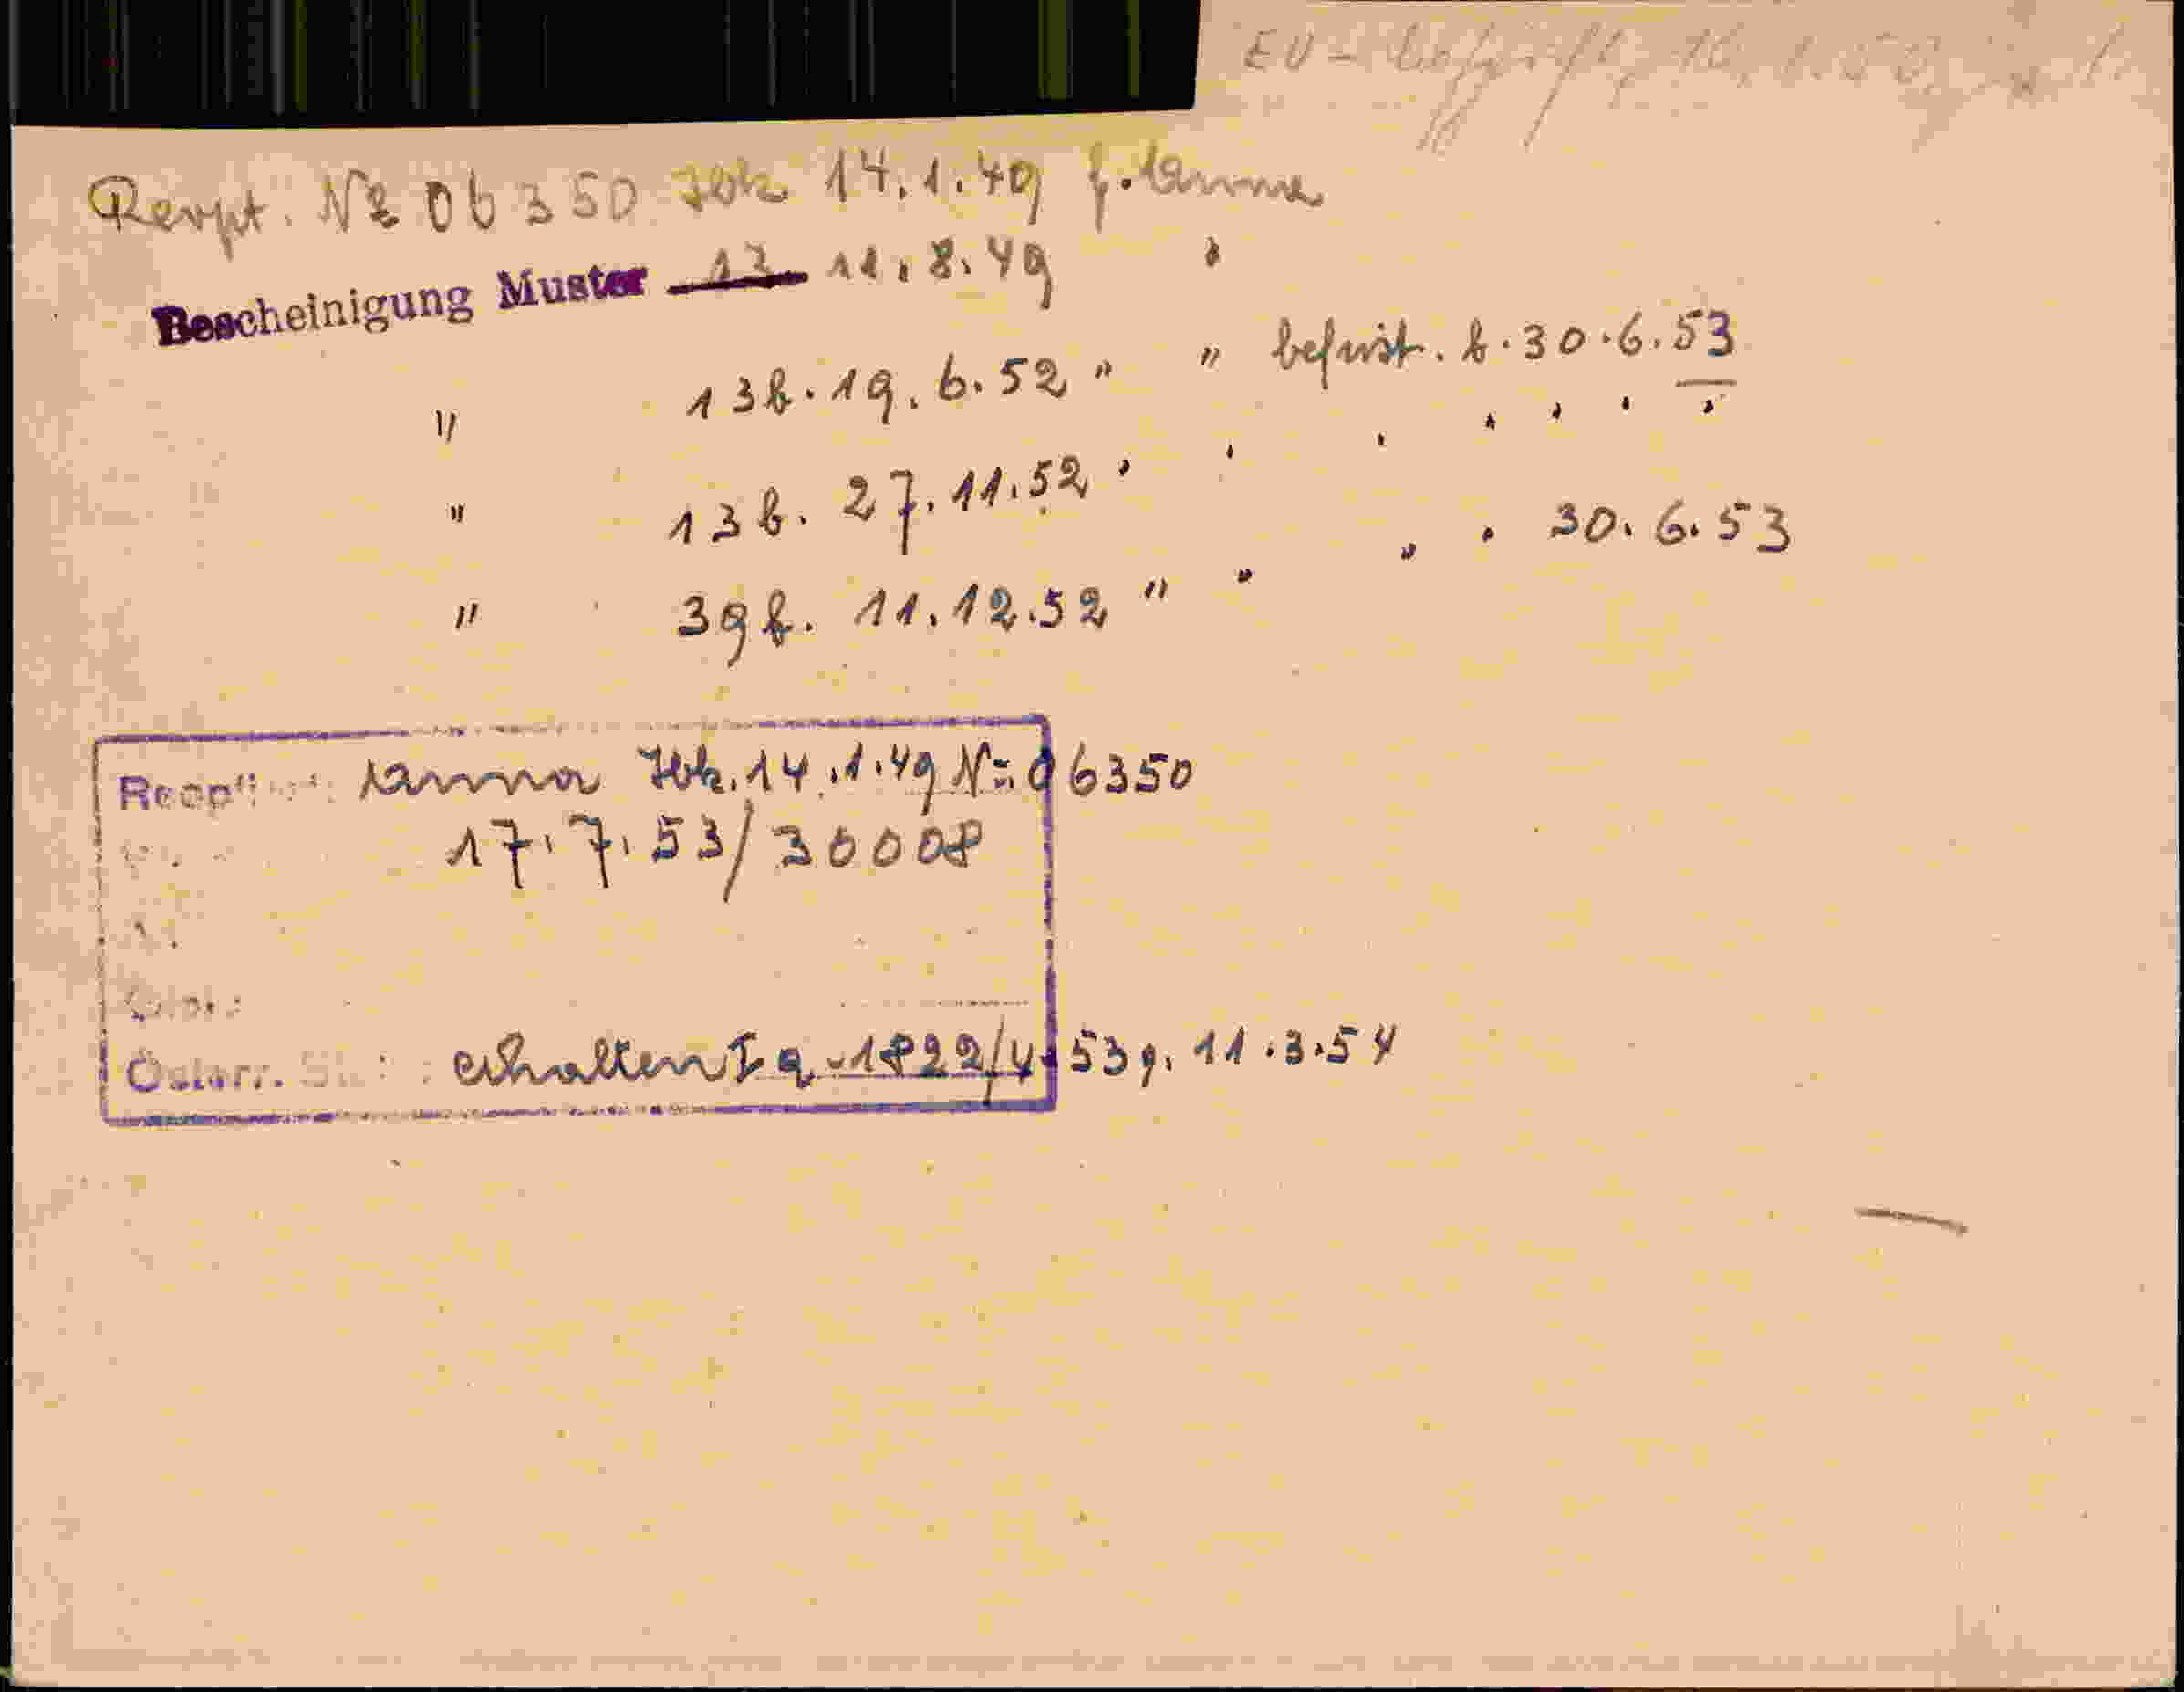 EU-
Rezept. Nr 06350 Ibk. 14.1.49 f. Anna
Bescheinigung Muster 13 11.8.49 "
" 13b. 19.6.52 " " befrist. b. 30.6.53
" 13b. 27.11.52 " " " " " " "
" 39b. 11.12.52 " " " " 30.6.53
Ibk. 14.1.49 Nr. 06350
17.7.53/30008
Österr. St. : erhalten I a - 1822/4-53 v. 11.3.54